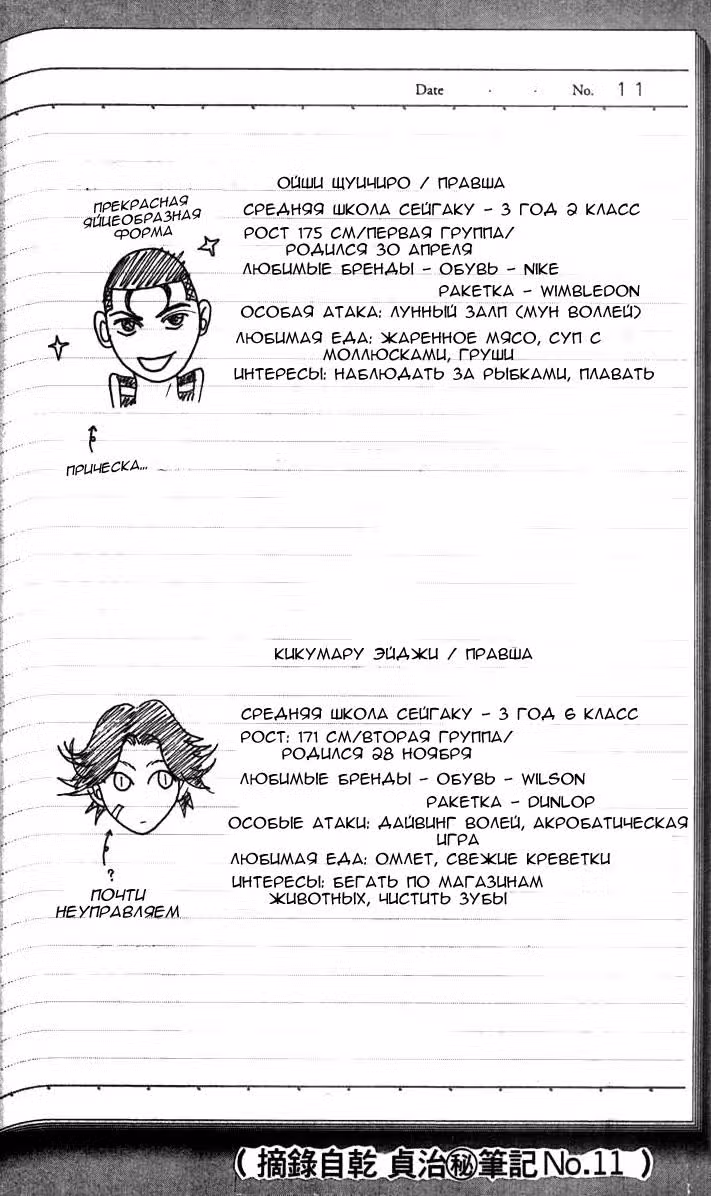 Date . . No. 11
ОЙШИ ЩУИЧИРО / ПРАВША
ПРЕКРАСНАЯ
ЯЙЦЕОБРАЗНАЯ
ФОРМА
СРЕДНЯЯ ШКОЛА СЕЙГАКУ - 3 ГОД 2 КЛАСС
РОСТ 175 СМ/ПЕРВАЯ ГРУППА/
РОДИЛСЯ 30 АПРЕЛЯ
ЛЮБИМЫЕ БРЕНДЫ - ОБУВЬ - NIKE
РАКЕТКА - WIMBLEDON
ОСОБАЯ АТАКА: ЛУННЫЙ ЗАЛП (МУН ВОЛЛЕЙ)
ЛЮБИМАЯ ЕДА: ЖАРЕННОЕ МЯСО, СУП С
МОЛЛЮСКАМИ, ГРУШИ
ИНТЕРЕСЫ: НАБЛЮДАТЬ ЗА РЫБКАМИ, ПЛАВАТЬ
ПРИЧЕСКА...
КИКУМАРУ ЭЙДЖИ / ПРАВША
СРЕДНЯЯ ШКОЛА СЕЙГАКУ - 3 ГОД 6 КЛАСС
РОСТ: 171 СМ/ВТОРАЯ ГРУППА/
РОДИЛСЯ 28 НОЯБРЯ
ЛЮБИМЫЕ БРЕНДЫ - ОБУВЬ - WILSON
РАКЕТКА - DUNLOP
ОСОБЫЕ АТАКИ: ДАЙВИНГ ВОЛЕЙ, АКРОБАТИЧЕСКАЯ
ИГРА
ЛЮБИМАЯ ЕДА: ОМЛЕТ, СВЕЖИЕ КРЕВЕТКИ
ИНТЕРЕСЫ: БЕГАТЬ ПО МАГАЗИНАМ
ЖИВОТНЫХ, ЧИСТИТЬ ЗУБЫ
?
ПОЧТИ
НЕУПРАВЛЯЕМ
(摘錄自乾 貞治㊙筆記No.11)